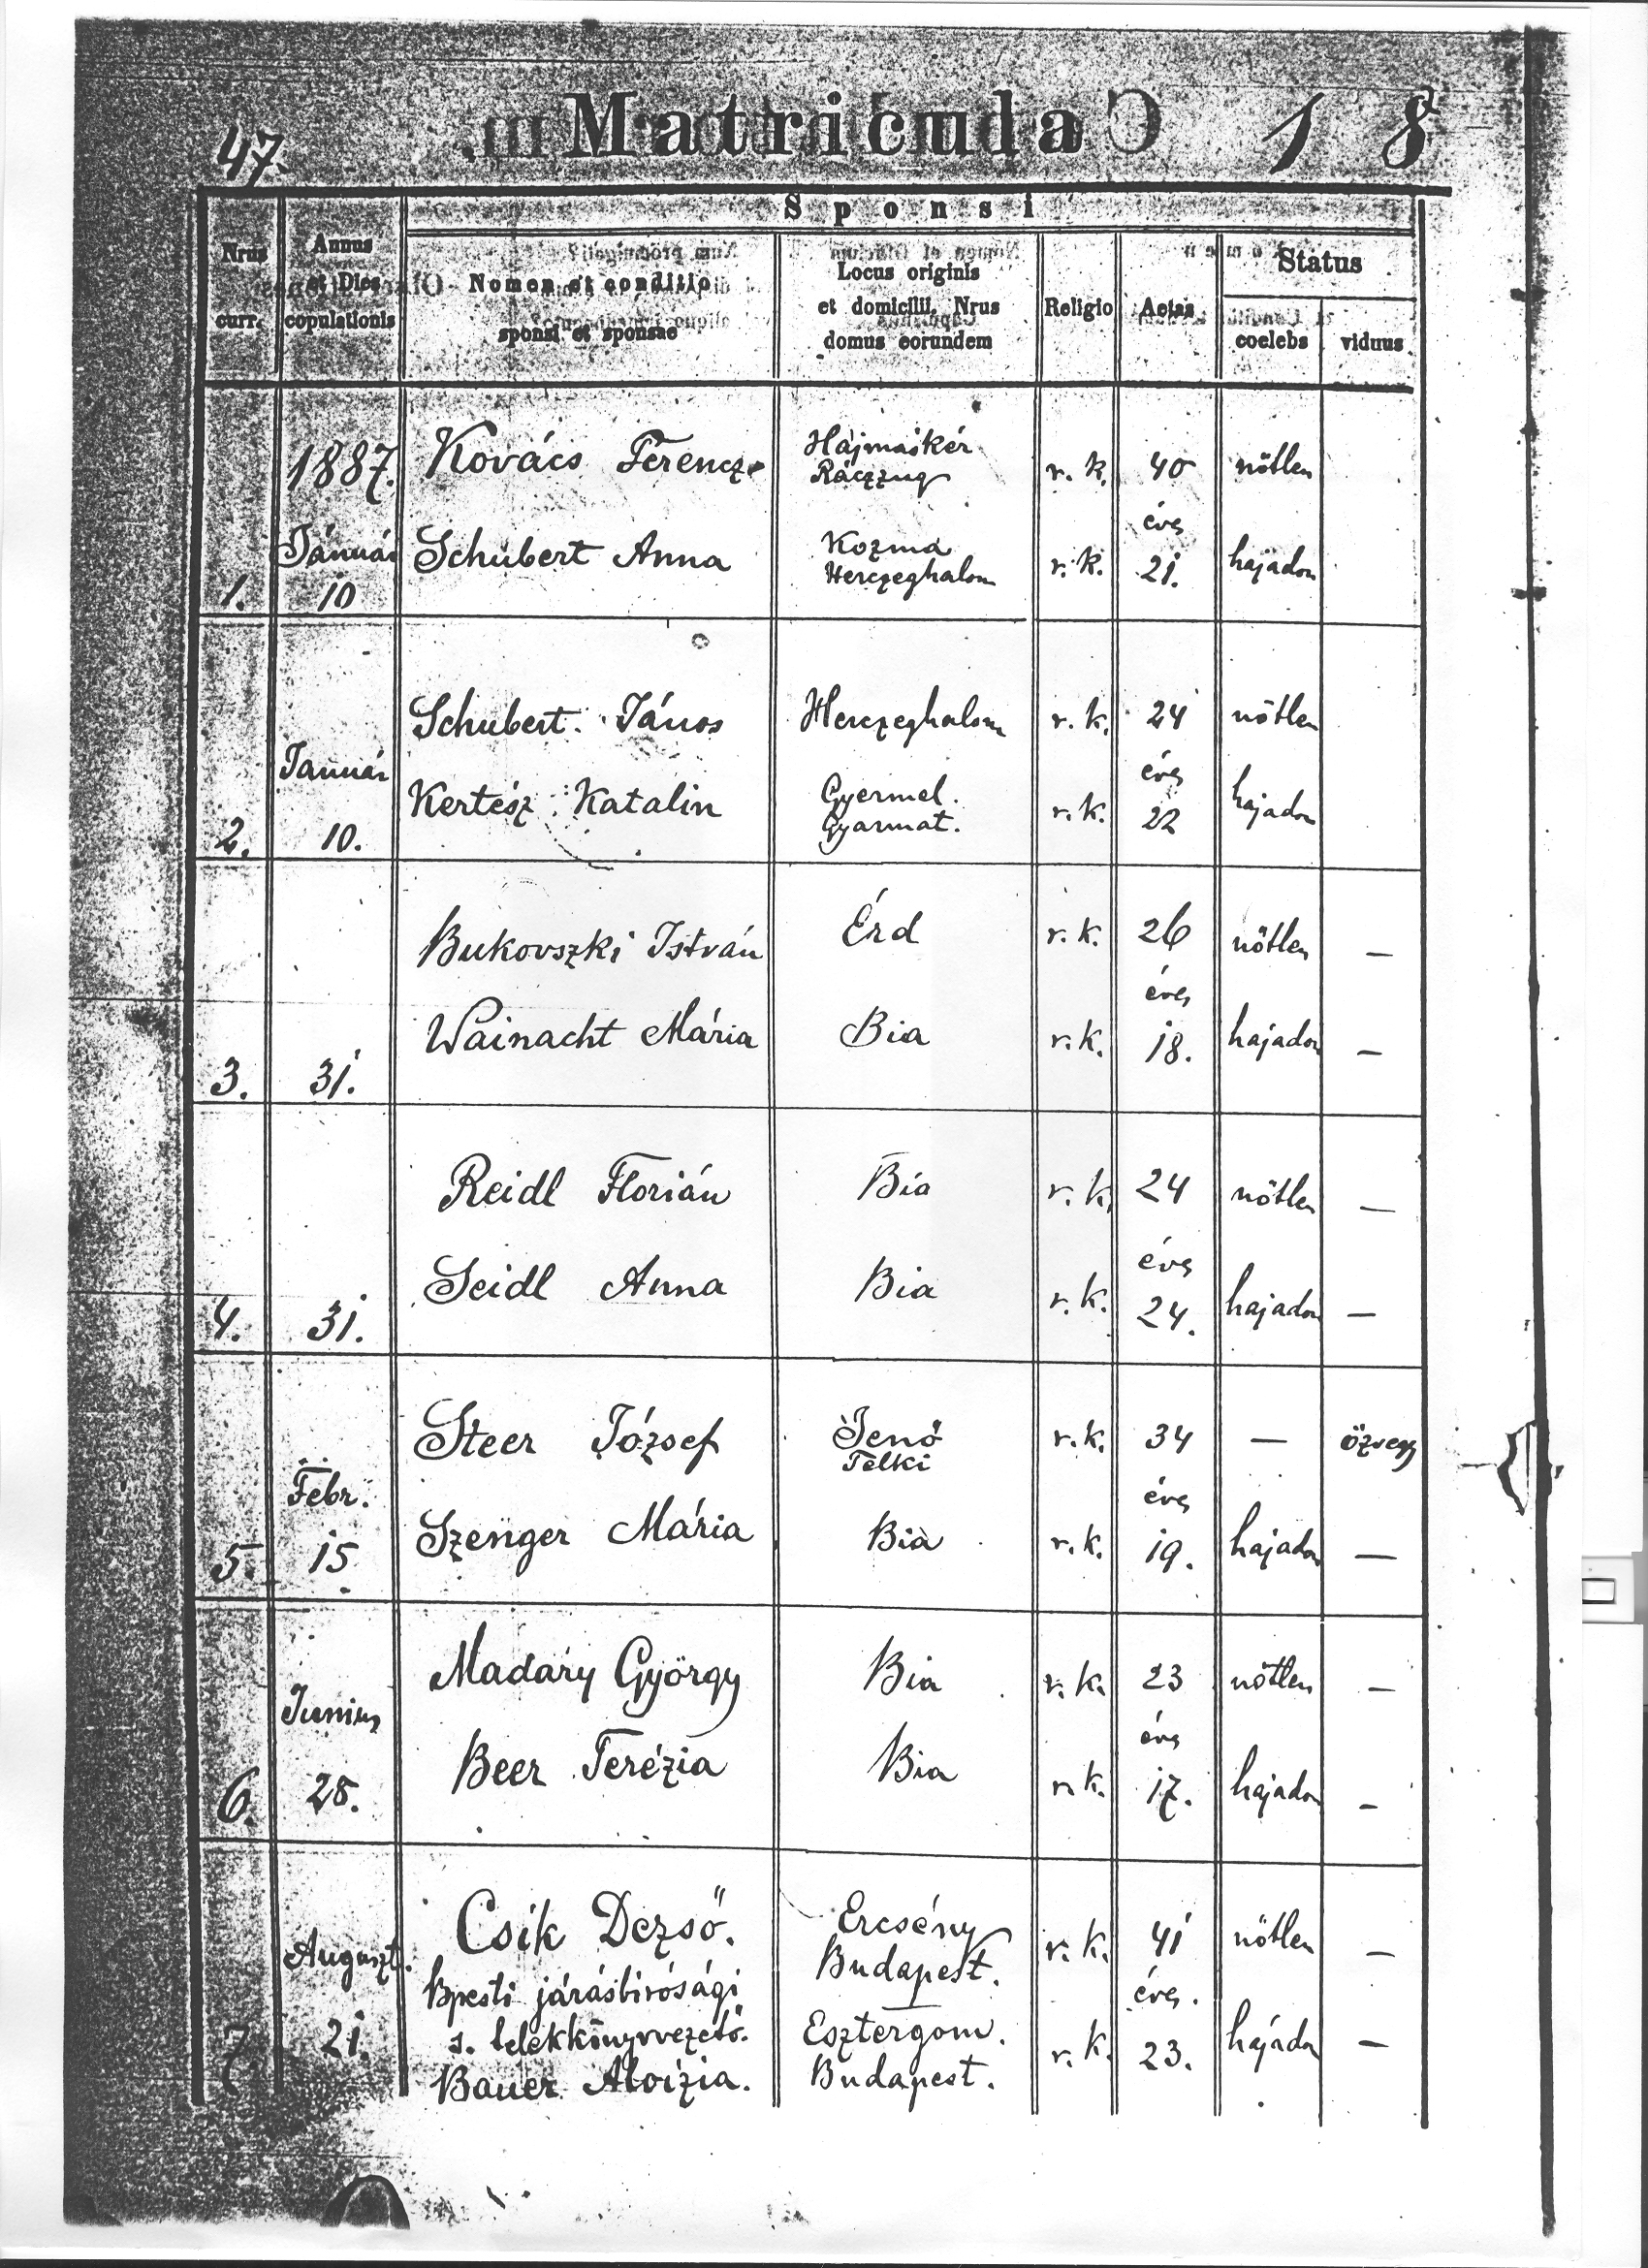 47.
Matricula
18
Sponsi
Nrus
curr.
Annus
et Dies
copulationis
Nomen et conditio
sponsi et sponsae
Locus originis
et domicilii, Nrus
domus eorundem
Religio
Aetas
Status
coelebs
viduus
1887.
Kovács Ferencz
Hajmáskér
Ráczzug
r. k.
40
nőtlen
éves
Január
Schubert Anna
Kozma
Herczeghalom
r. k.
21.
hajadon
1.
10
Schubert János
Herczeghalom
r. k.
24
nőtlen
éves
Január
Kertész Katalin
Gyermel.
Gyarmat.
r. k.
22
hajadon
2.
10.
Bukovszki István
Érd
r. k.
26
nőtlen
—
éves
Wainacht Mária
Bia
r. k.
18.
hajadon
—
3.
31.
Reidl Florián
Bia
r. k.
24
nőtlen
—
éves
Seidl Anna
Bia
r. k.
24.
hajadon
—
4.
31.
Steer József
Jenő
Telki
r. k.
34
—
özvegy
éves
Febr.
Szenger Mária
Bia
r. k.
19.
hajadon
—
5.
15
Madary György
Bia
r. k.
23
nőtlen
—
éves
Junius
Beer Terézia
Bia
r. k.
17.
hajadon
—
6.
28.
Csík Dezső.
Ercsény
Budapest.
r. k.
41
nőtlen
—
éves.
Auguszt.
Bpesti járásbirósági
s. telekkönyvvezető.
Bauer Aloízia.
Esztergom.
Budapest.
r. k.
23.
hajadon
—
7
21.